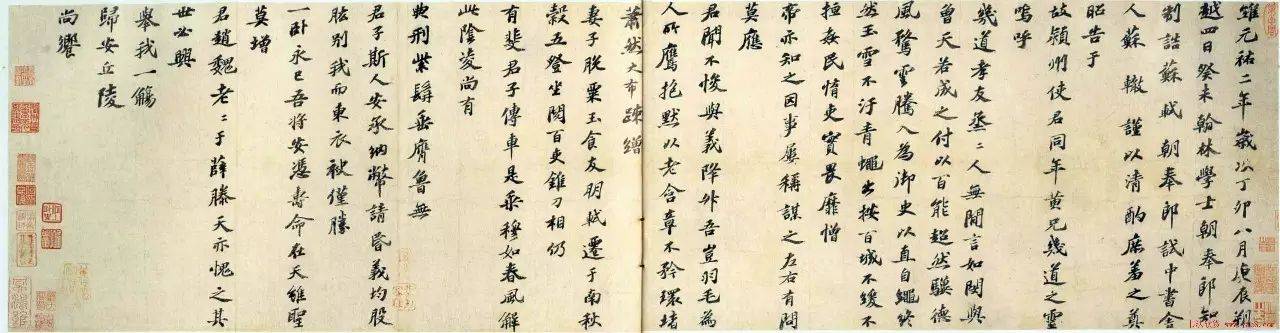 維元祐二年歲次丁卯八月庚辰朔
越四日癸未翰林學士朝奉郎知
制誥蘇軾朝奉郎試中書舍
人蘇轍謹以清酌庶羞之奠
昭告于
故潁州使君同年黃兄幾道之靈
嗚呼
幾道孝友烝二人無間言如閔與
曾天若成之付以百能超然驥德
風騖雲騰入為御史以直自繩終
然玉雪不汙青蠅出按百城不緩不
揯姦民惰吏實畏靡憎
帝亦知之因事屢稱謀之左右有問
莫應
君聞不悛與義降升吾豈羽毛為
人所鷹抱默以老含章不矜環堵
蕭然大布疎繒
妻子脫粟玉食友朋軾遷于南秋
穀五登坐閱百吏錐刀相仍
有斐君子傳車是乘穆如春風解
此陰凌尚有
典刑紫髯垂膺魯無
君子斯人安承納幣請昏義均股
肱別我而東衣袂僅勝
一卧永已吾將安憑壽命在天維聖
莫增
君趙魏老二于薛滕天亦愧之其
世必興
舉我一觴
歸安丘陵
尚饗